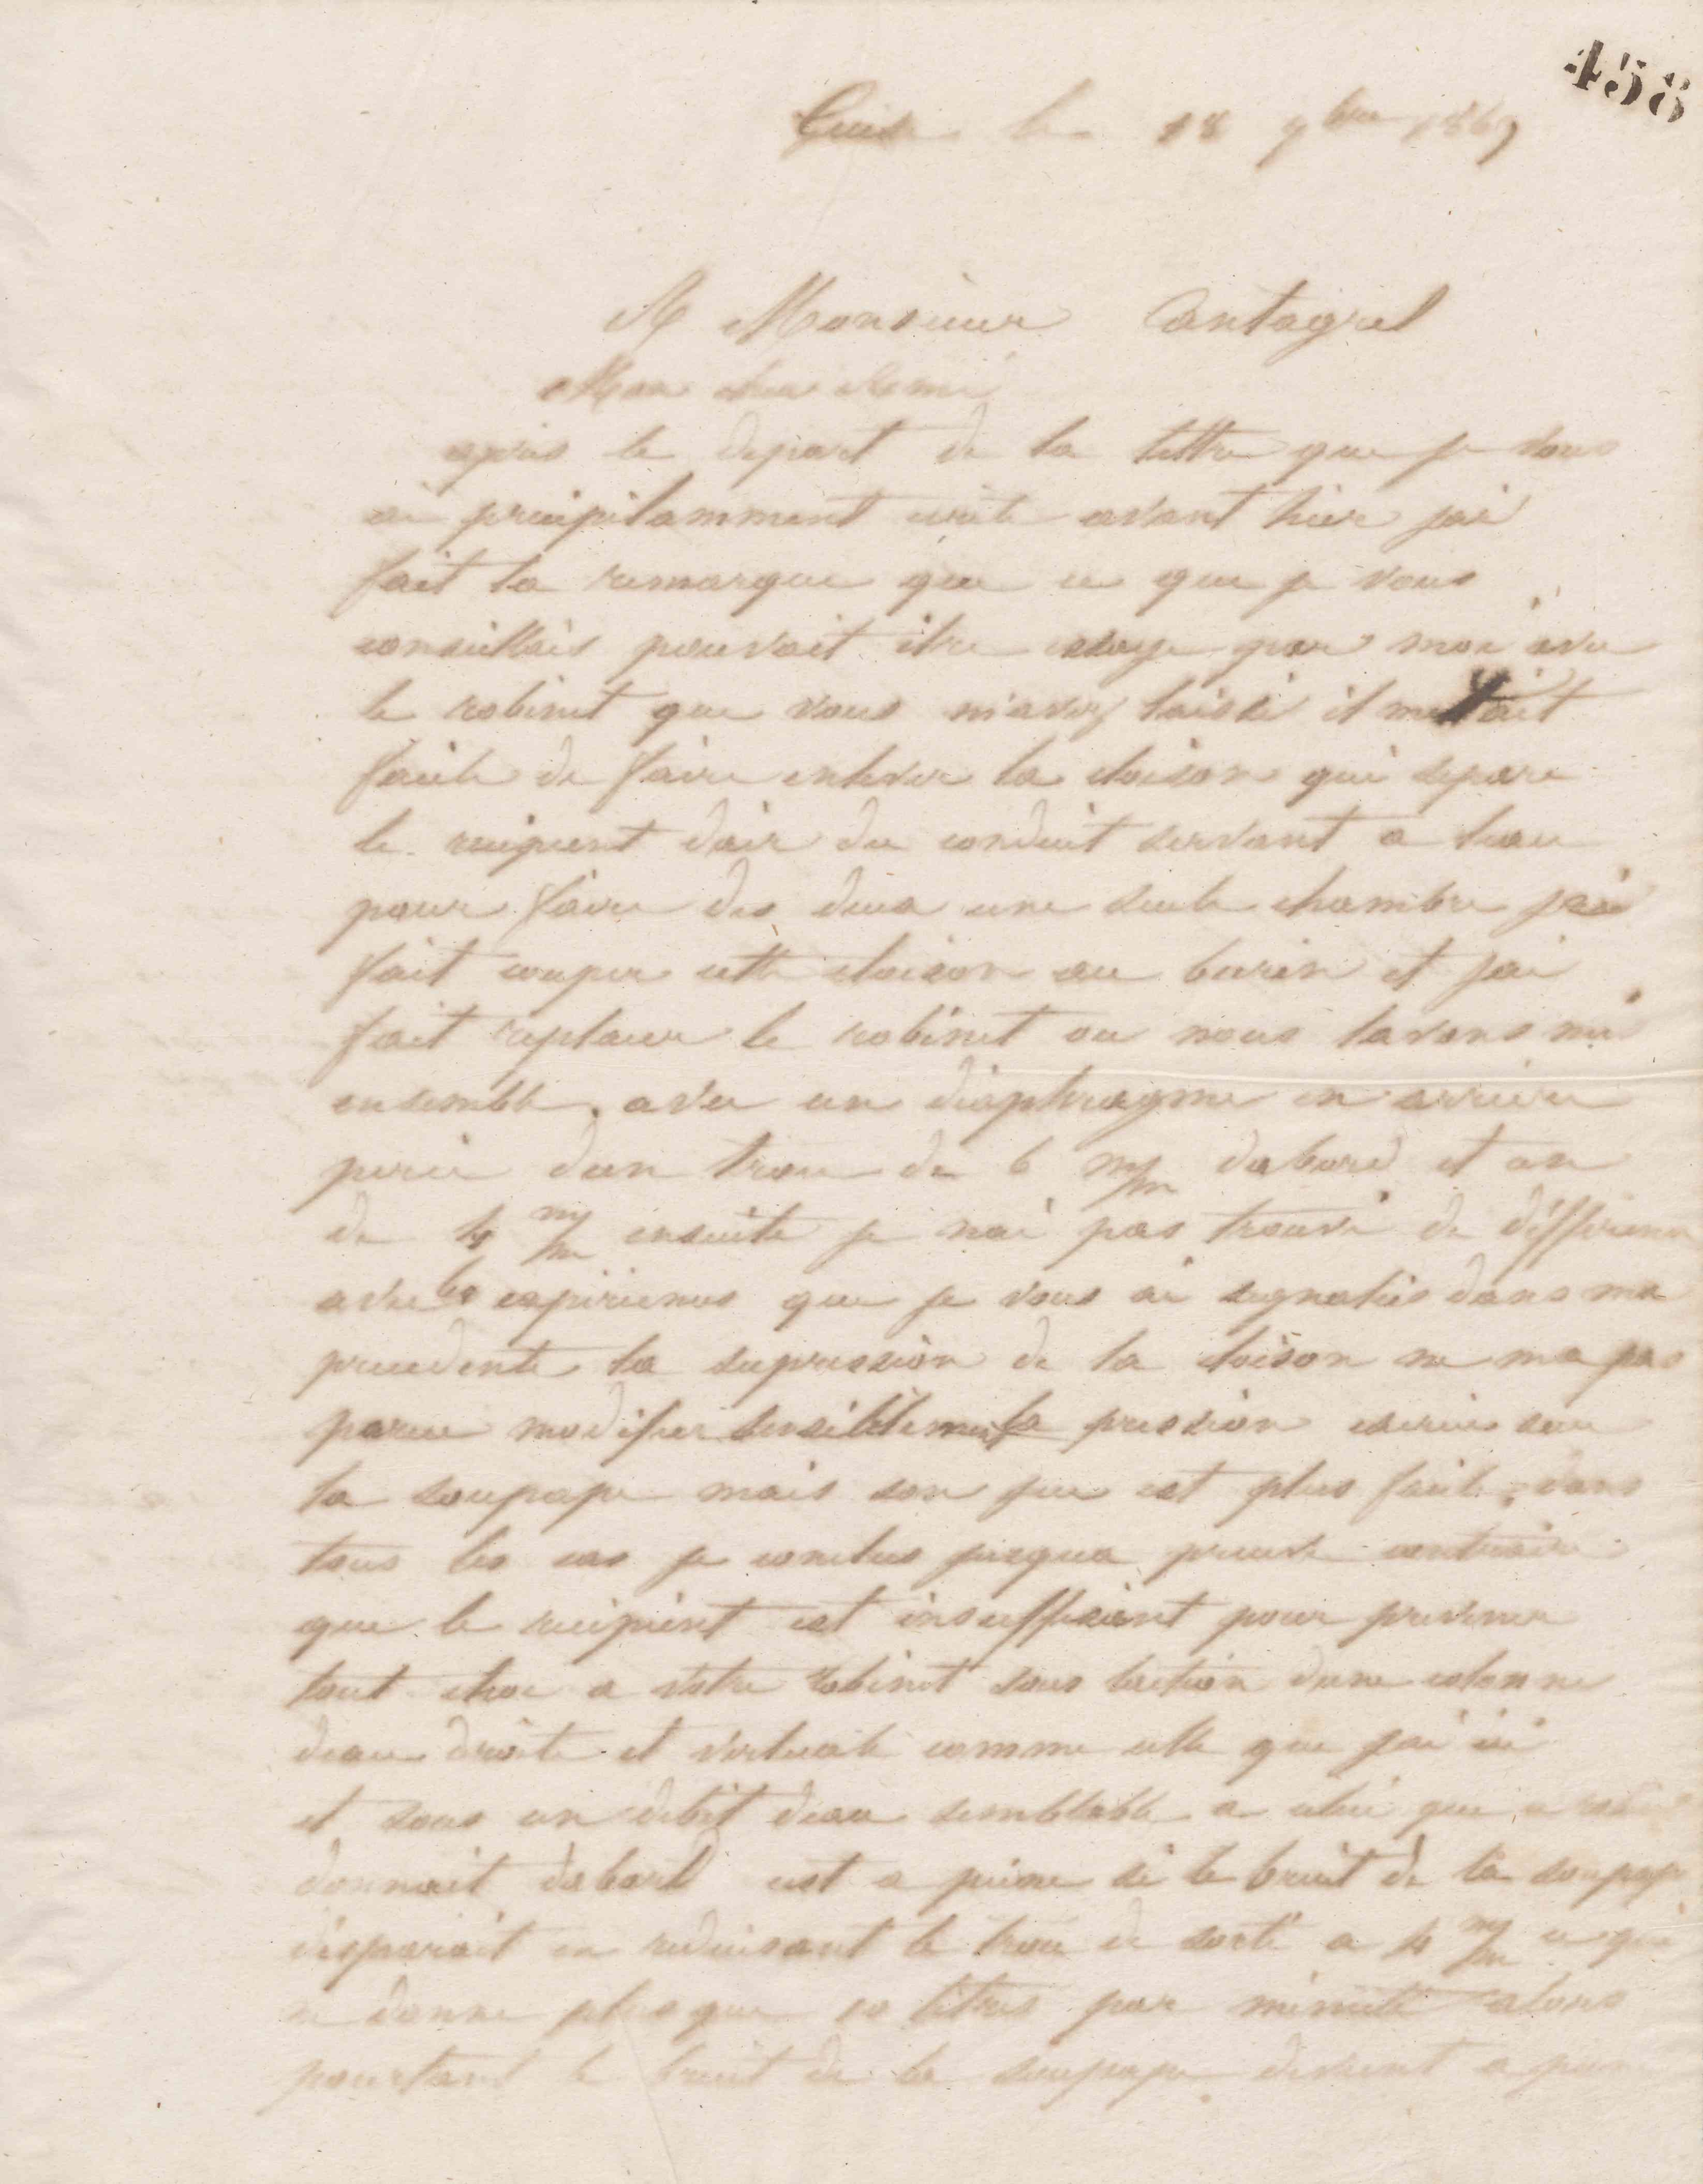 458
Guise le 18 9bre 1869
A Monsieur Cantagrel
Mon cher Ami
après le depart de la lettre que je vous
ai precipitamment ecrite avant hier jai
fait la remarque que ce que je vous
conseillais pouvait être essaye par moi avec
le robinet que vous m'avez laissé il metait
facile de faire enlever la cloison qui separe
le recipient dair du conduit servant a leau
pour faire des deux une seule chambre jai
fait couper cette cloison au burin et jai
fait replacer le robinet ou nous lavons mis
ensemble, avec un diaphragme en arriere
percé dun trou de 6 m/m dabord et un
de 4 m/m ensuite je nai pas trouvé de différence
avec les expériences que je vous ai signalées dans ma
precedente la supression de la cloison ne ma pas
parue modifier sensiblement la pression exercée sur
la soupape mais son jeu est plus facile, dans
tous les cas je conclus jusqua preuve contraire
que le recipient est insuffisant pour prevenir
tout choc a votre robinet sous laction dune colonne
deau droite et verticale comme celle que jai ici
et sous un debit deau semblable a celui que
donnait dabord cest a peine si le bruit de la soupape
disparait en reduisant le trou de sortie a 4 m/m ce qui
ne donne plus que 10 litres par minute alors
pourtant le bruit de la soupape devient a peine